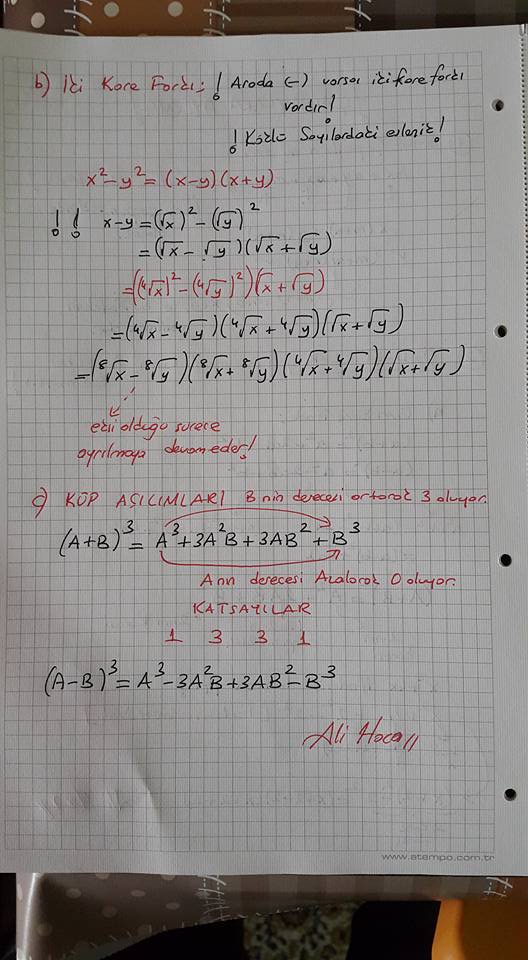 b) İki Kare Farkı: ! Arada (-) varsa iki kare farkı
vardır!
! Köklü Sayılardaki eşlenik!
x²-y²=(x-y)(x+y)
!! x-y=(√x)²-(√y)²
=(√x-√y)(√x+√y)
=((⁴√x)²-(⁴√y)²)(√x+√y)
=(⁴√x-⁴√y)(⁴√x+⁴√y)(√x+√y)
=(⁸√x-⁸√y)(⁸√x+⁸√y)(⁴√x+⁴√y)(√x+√y)
eksi olduğu sürece
ayrılmaya devam eder!
c) KÜP AÇILIMLARI B nin derecesi artarak 3 oluyor.
(A+B)³=A³+3A²B+3AB²+B³
Anın derecesi Azalarak 0 oluyor.
KATSAYILAR
1 3 3 1
(A-B)³=A³-3A²B+3AB²-B³
Ali Hoca
www.atempo.com.tr